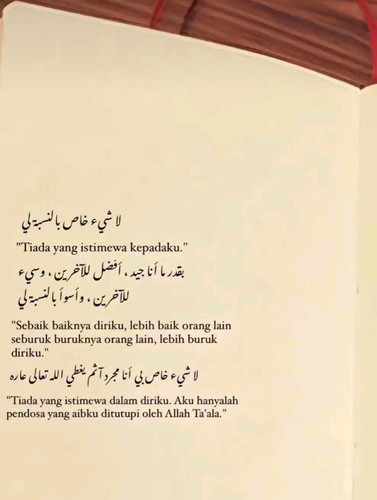 لا شيء خاص بالنسبة لي
"Tiada yang istimewa kepadaku."
بقدر ما أنا جيد ، أفضل للآخرين ، وسيء
للآخرين ، وأسوأ بالنسبة لي
"Sebaik baiknya diriku, lebih baik orang lain
seburuk buruknya orang lain, lebih buruk
diriku."
لا شيء خاص بي أنا مجرد آثم يغطي الله تعالى عاره
"Tiada yang istimewa dalam diriku. Aku hanyalah
pendosa yang aibku ditutupi oleh Allah Ta'ala."